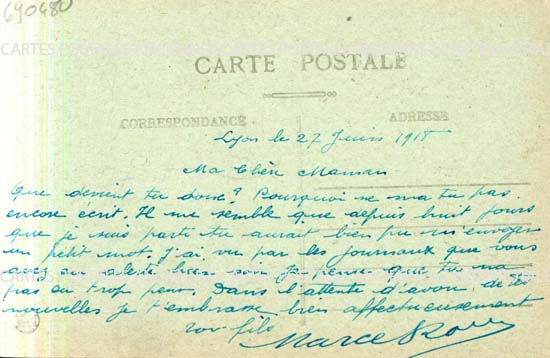 690480
CARTE POSTALE
CORRESPONDANCE
ADRESSE
Lyon le 27 Juin 1918
Ma Chère Maman
Que devient tu donc? Pourquoi ne ma tu pas
encore écrit. Il me semble que depuis huit jours
que je suis parti tu aurait bien pu m'envoyer
un petit mot. J'ai vu par les journaux que vous
avez eu alerte hier soir. Je pense que tu na
pas eu trop peur. Dans l'attente d'avoir de tes
nouvelles je t'embrasse bien affectueusement
ton fils
Marcel